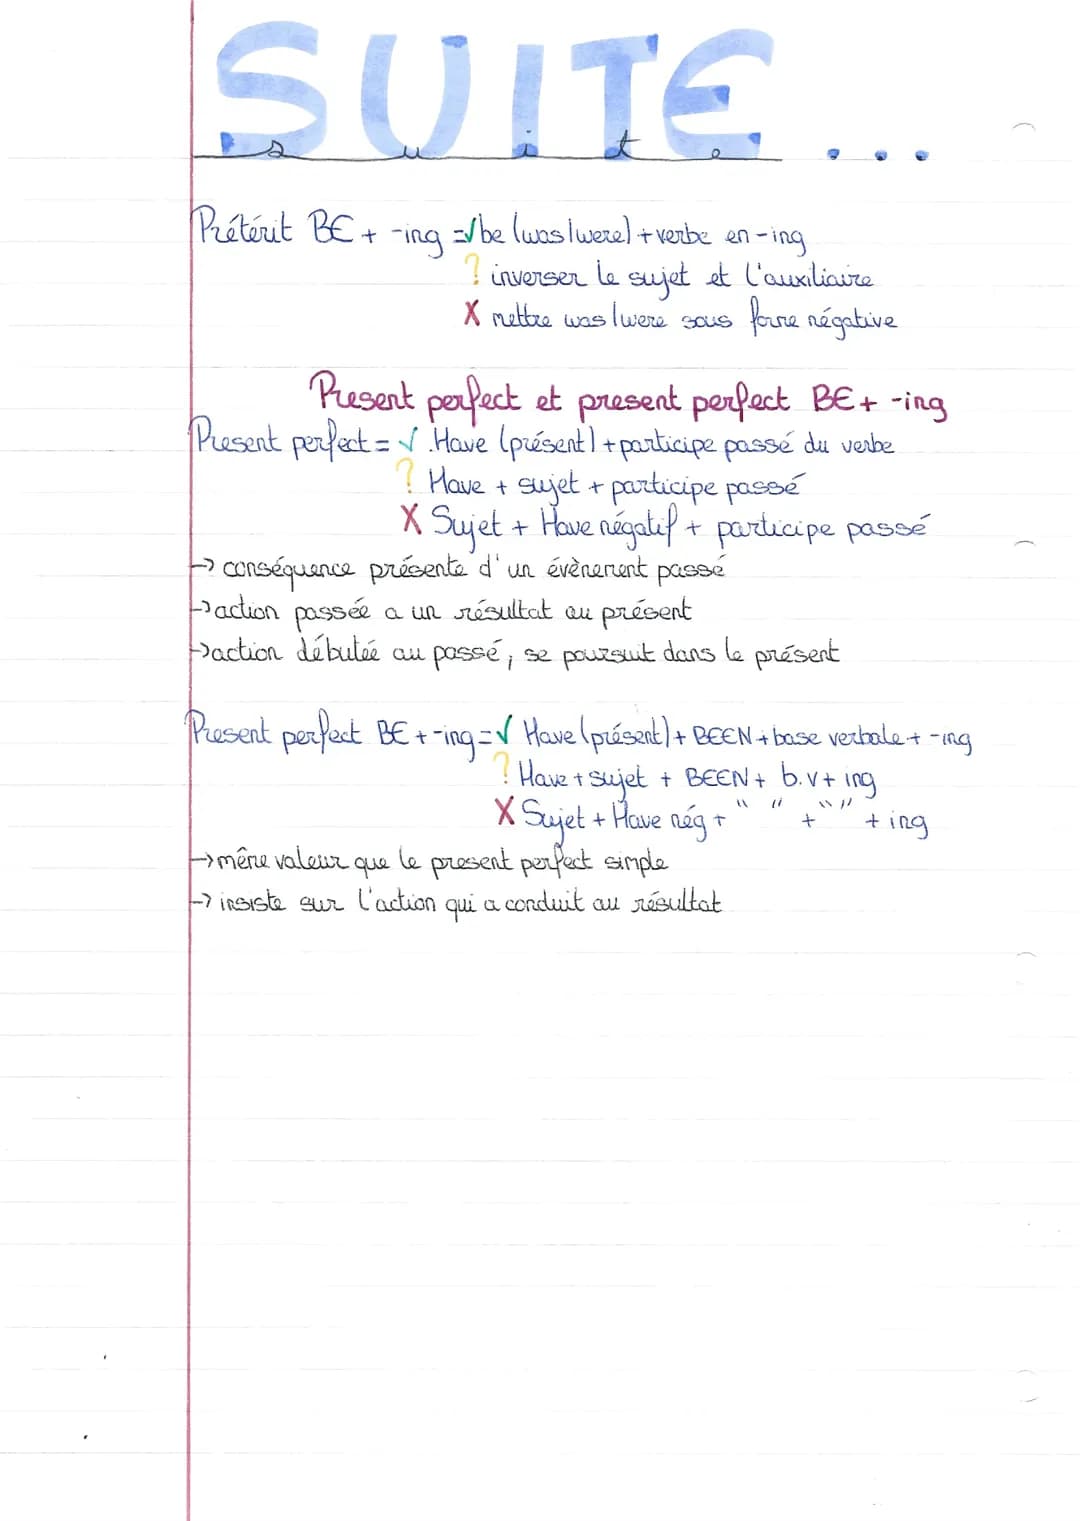 SUITE...
suite
Prétérit BE + -ing = √ be (was/were) + verbe en -ing
? inverser le sujet et l'auxiliaire
X mettre was/were sous forme négative
Present perfect et present perfect BE + -ing
Present perfect = √ . Have (présent) + participe passé du verbe
? Have + sujet + participe passé
X Sujet + Have négatif + participe passé
→ conséquence présente d'un évènement passé
→ action passée a un résultat au présent
→ action débutée au passé, se poursuit dans le présent
Present perfect BE + -ing = √ Have (présent) + BEEN + base verbale + -ing
? Have + sujet + BEEN + b.v + ing
X Sujet + Have nég + " " + " " + ing
→ même valeur que le present perfect simple
→ insiste sur l'action qui a conduit au résultat